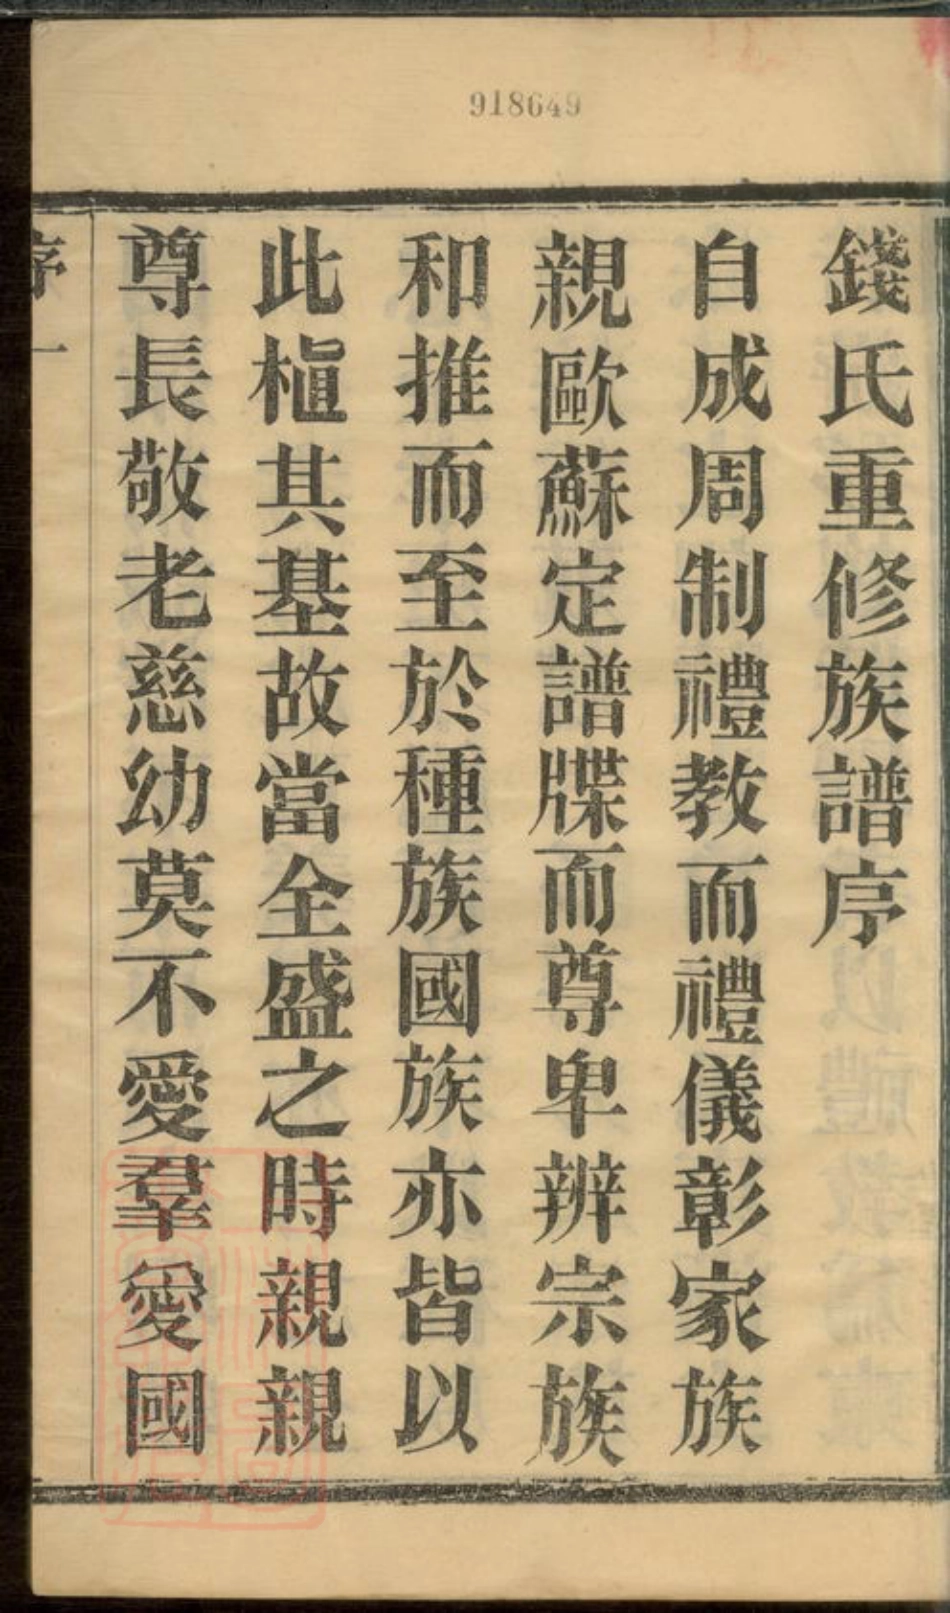 918649
錢氏重修族譜序
自成周制禮教而禮儀彰家族
親歐蘇定譜牒而尊卑辨宗族
和推而至於種族國族亦皆以
此植其基故當全盛之時親親
尊長敬老慈幼莫不愛羣愛國
序 一